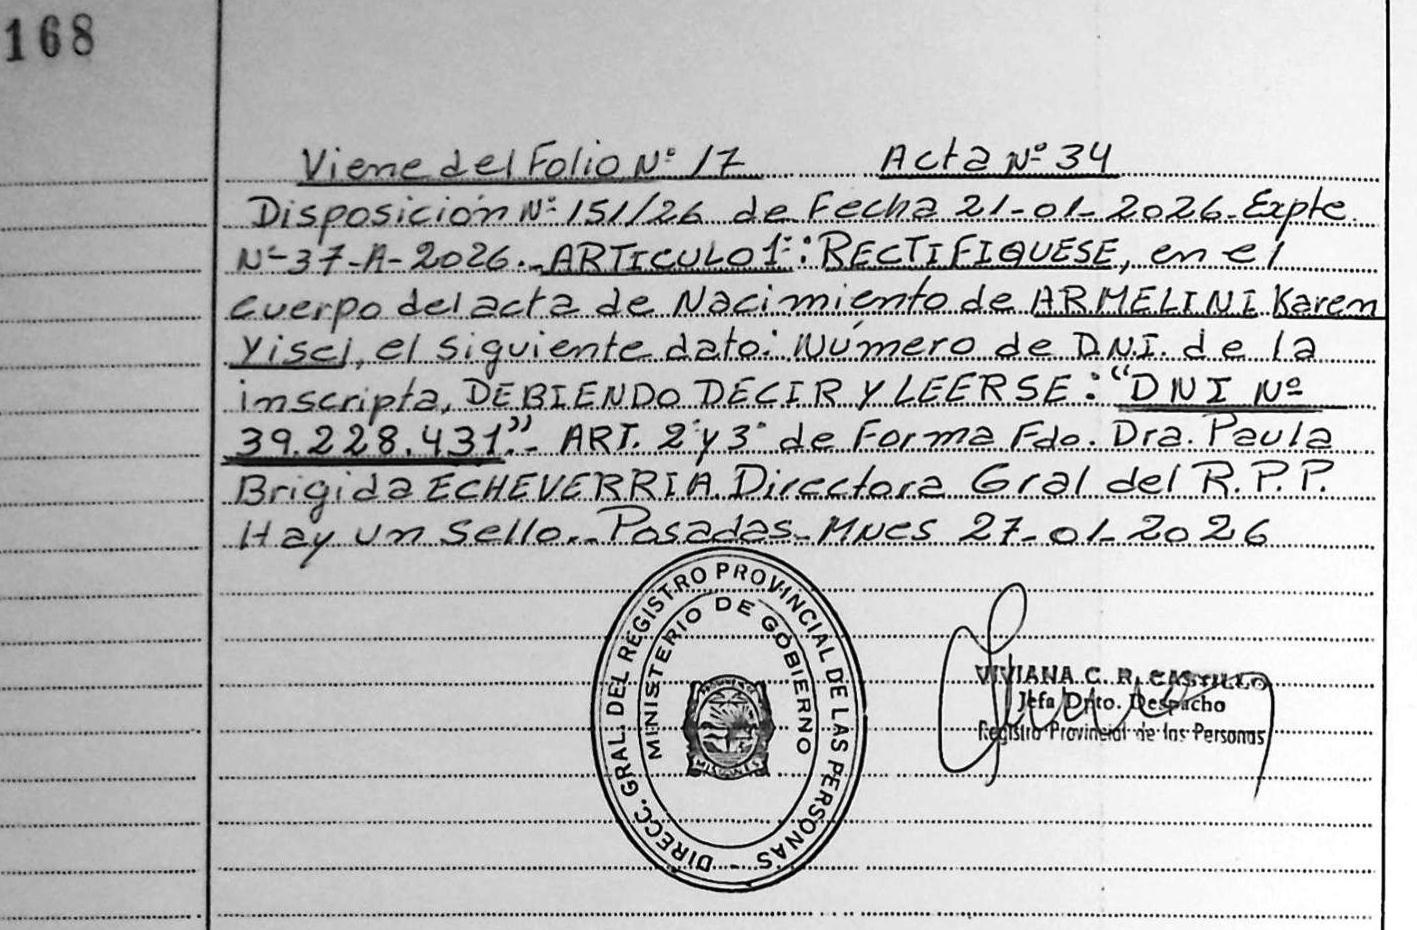 168
Viene del Folio Nº 17 Acta Nº 34
Disposición Nº 151/26 de Fecha 21-01-2026. Expte.
Nº 37-A-2026. ARTICULO 1º: RECTIFIQUESE, en el
cuerpo del acta de Nacimiento de ARMELINI Karen
Yisel, el siguiente dato: Número de D.N.I. de la
inscripta, DEBIENDO DECIR Y LEERSE: "DNI Nº
39.228.431".- ART. 2º y 3º de Forma Fdo. Dra. Paula
Brigida ECHEVERRIA. Directora Gral del R.P.P.
Hay un Sello.- Posadas. Mnes 27-01-2026
DIRECC. GRAL. DEL REGISTRO PROVINCIAL DE LAS PERSONAS -
MINISTERIO DE GOBIERNO
MISIONES
VIVIANA C. R. CASTILLO
Jefa Dpto. Despacho
Registro Provincial de las Personas